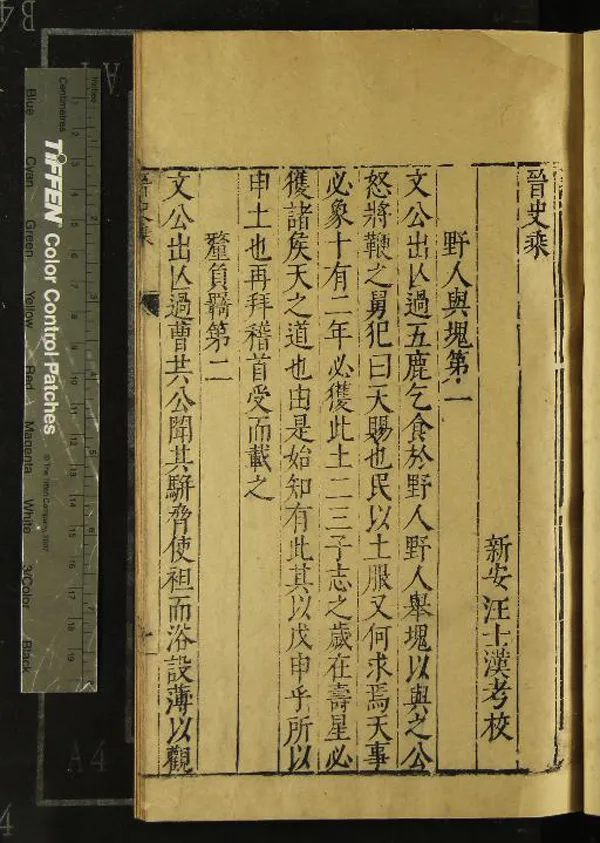 晉史乘
新安汪士漢考校
野人與塊第一
文公出亾過五鹿乞食於野人野人舉塊以與之公
怒將鞭之舅犯曰天賜也民以土服又何求焉天事
必象十有二年必獲此土二三子志之歲在壽星必
獲諸侯天之道也由是始知有此其以戊申乎所以
申土也再拜稽首受而載之
釐負羈第二
文公出亾過曹共公聞其駢脅使袒而浴設薄以觀
晉史乘
一
Inches
Centimetres
TIFFEN Color Control Patches
© The Tiffen Company, 2007
Blue Cyan Green Yellow Red Magenta White 3/Color Black
A4
B4